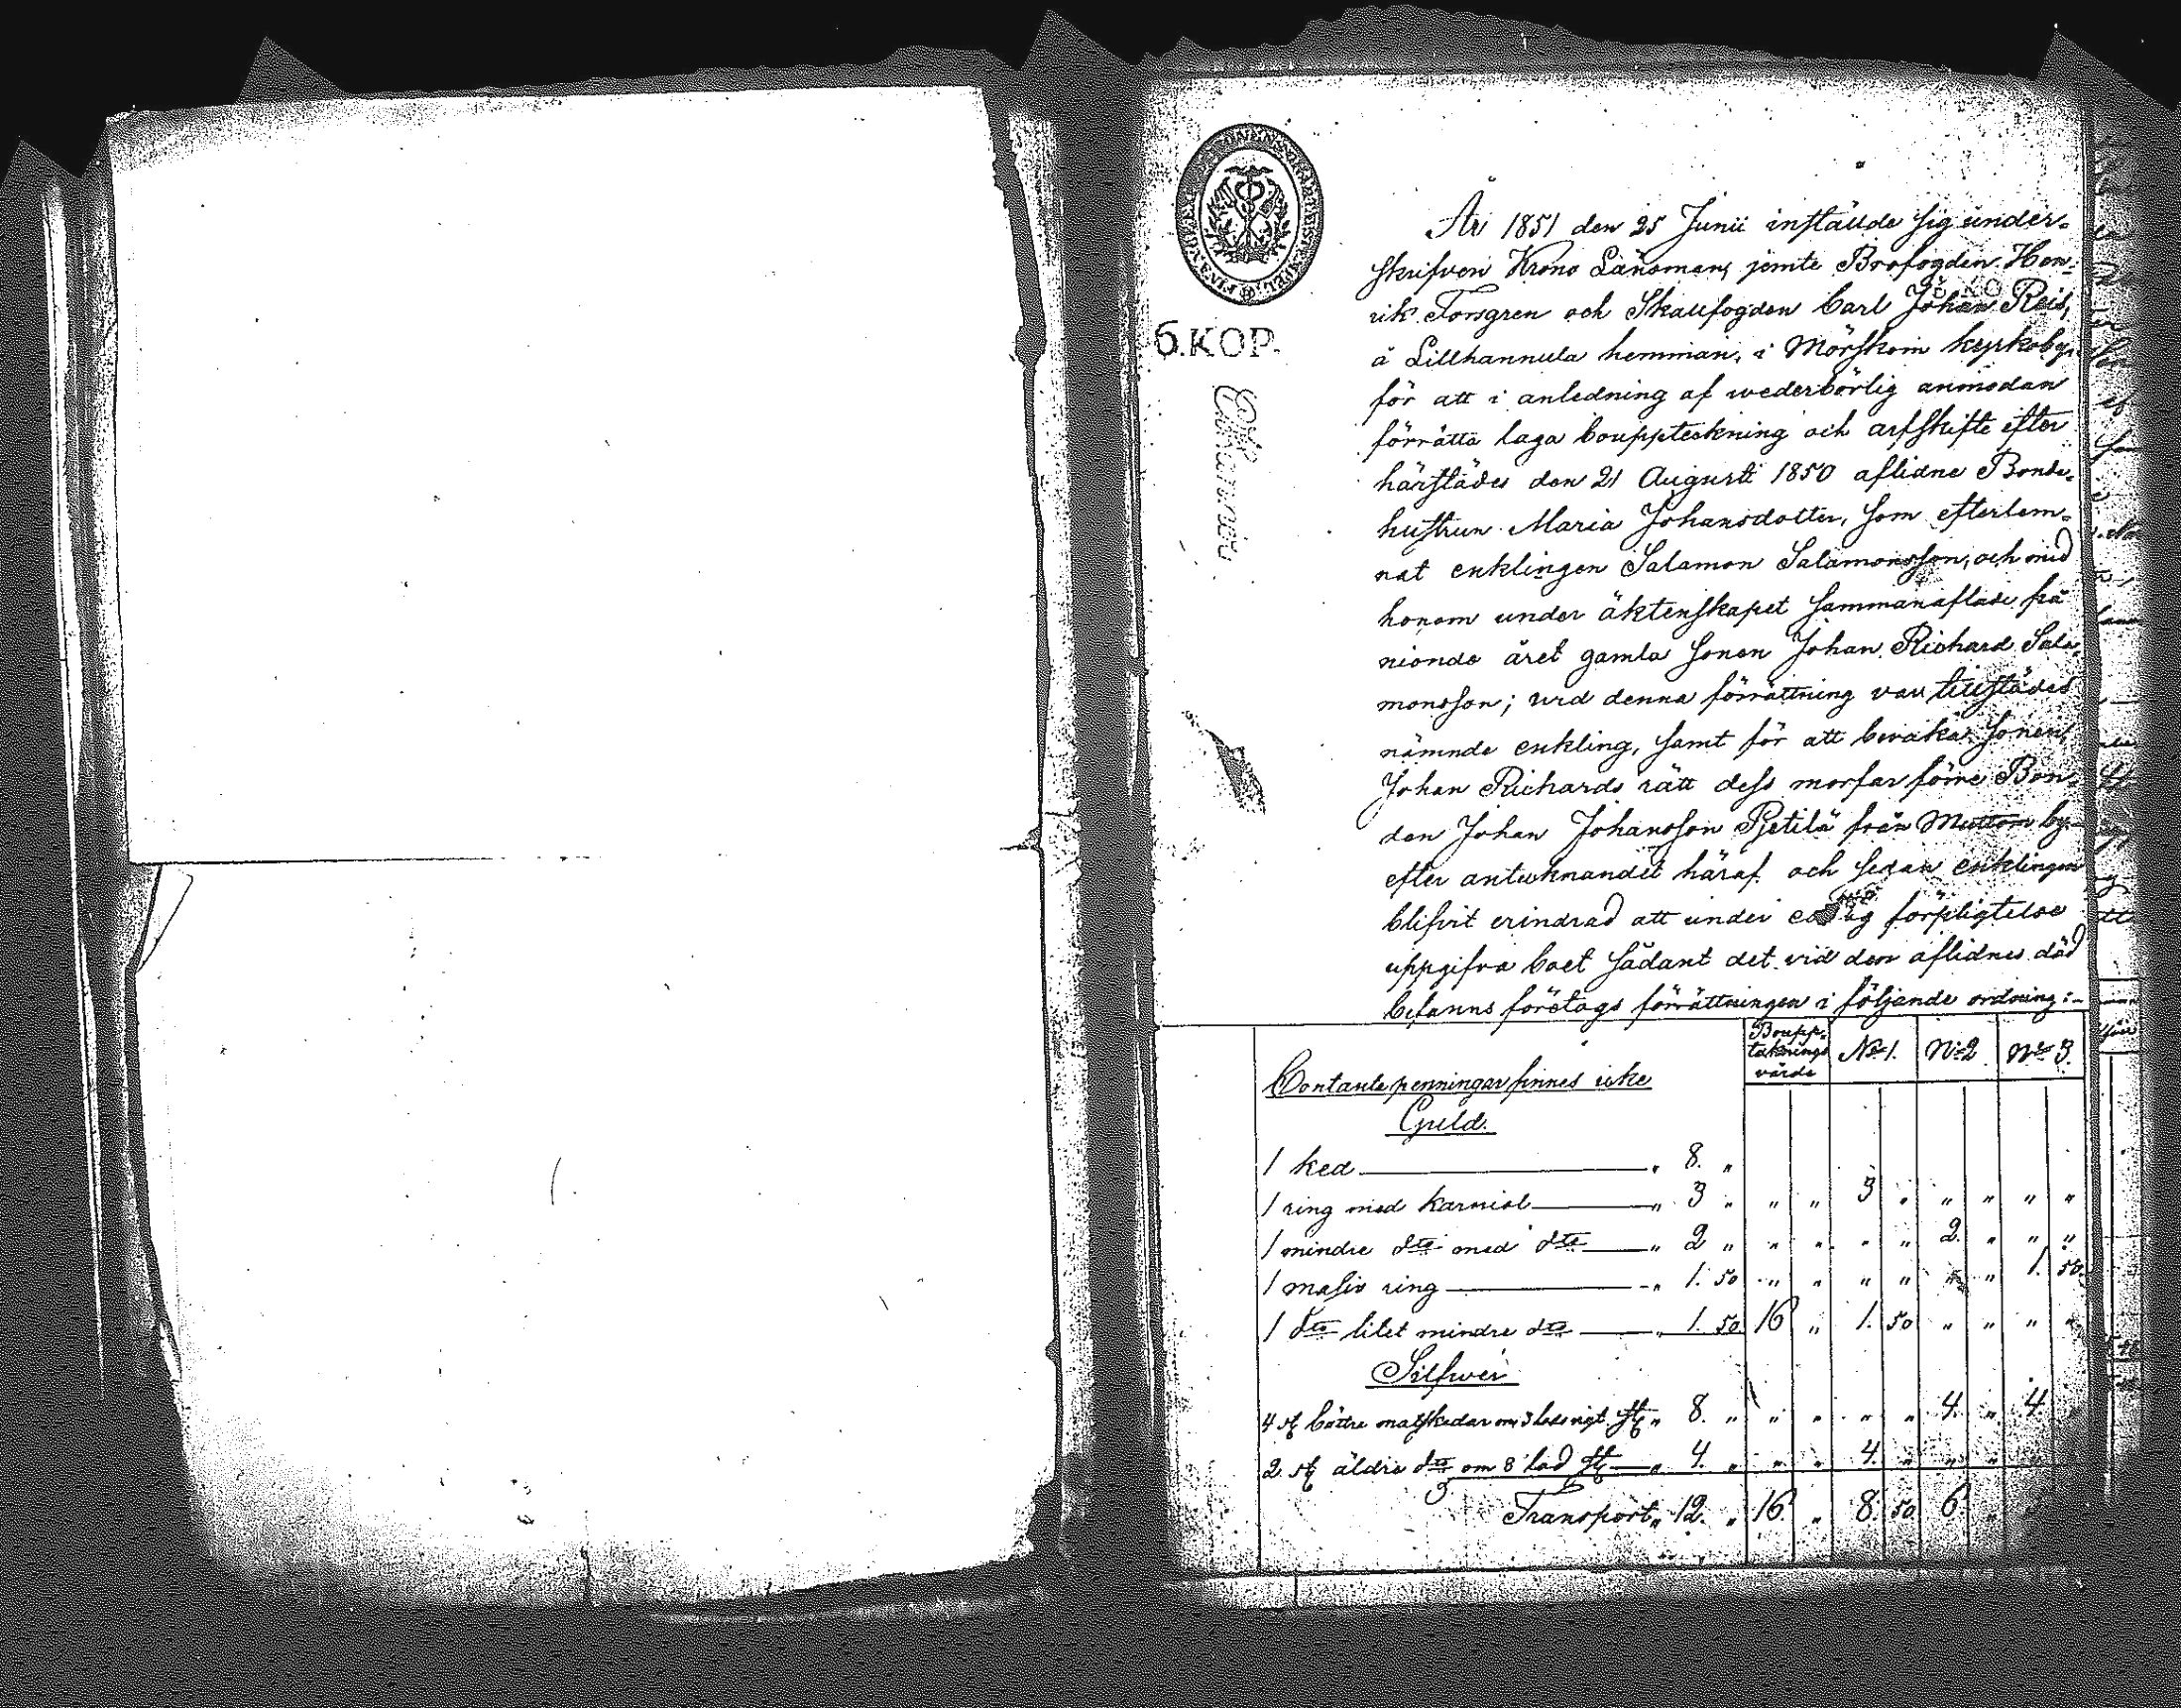 6.KOP.
År 1851 den 25 Junii inställde sig under-
skrifven Krono Länsman, jemte Brofogden Hen-
rik Forsgren och Skallfogden Carl Johan Reis,
å Lillhannula hemman, i Mörskom kyrkoby,
för att i anledning af wederbörlig anmodan
förrätta laga bouppteckning och arfskifte efter
härstädes den 21 Augusti 1850 aflidne Bonde-
hustrun Maria Johansdotter, som efterlem-
nat enklingen Salamon Salamonsson, och med
honom under äktenskapet sammanaflade på
nionde året gamla sonen Johan Richard Sala-
monsson; wid denna förrättning var tillstädes
nämnde enkling, samt för att bevaka sonen
Johan Richards rätt dess morfar förre Bon-
den Johan Johansson Pjetilä från by
efter antecknandet häraf och sedan enklingen
blifvit erindrad att under förpligtelse
uppgifva boet sådant det vid den aflidnes död
befanns företags förrättningen i följande ordning:-
Boupp-
tecknings
värde
No 1. No 2 No 3.
Contante penningar finnes icke
Guld.
1 ked " 8. "
1 ring med karniol " 3 " " " 3 " " " " "
1 mindre dto med dto " 2 " " " " " 2. " " "
1 masiv ring " 1. 50 " " " " " " 1. 50.
1 dto litet mindre dto " 1. 50. 16 " 1. 50 " " " "
Silfwer
4 st bättre matskedar om 3 lod st " 8. " " " " " 4. " 4.
2 st äldre dto om 3 lod st " 4. " " " 4. " " "
Transport " 12. " 16 " 8. 50. 6. "